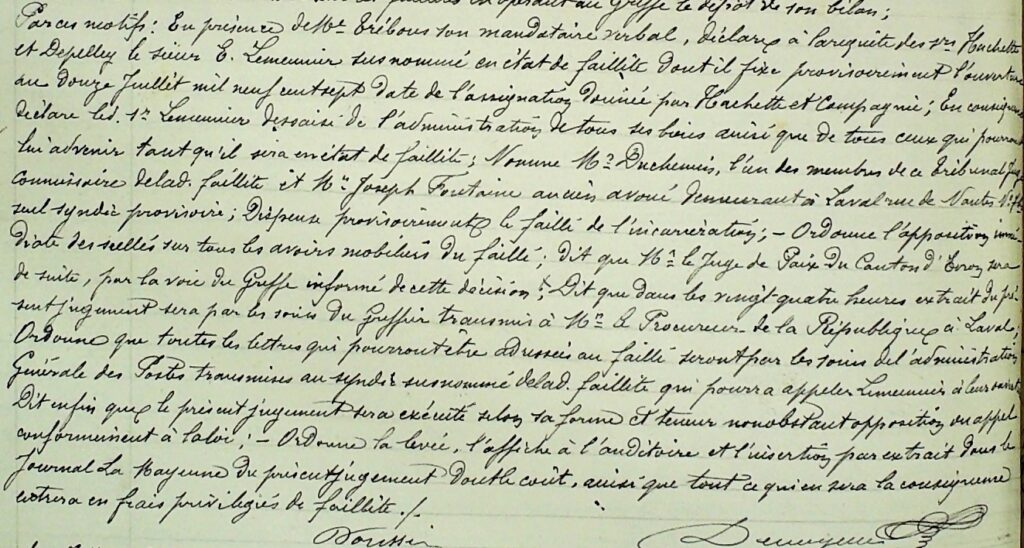 opérant au Greffe le dépôt de son bilan;
Par ces motifs: En présence de Me Trébous son mandataire verbal, déclare à la requête des srs Hachette
et Depelley le sieur E. Lemeunier susnommé en état de faillite dont il fixe provisoirement l'ouverture
au douze Juillet mil neuf cent sept date de l'assignation donnée par Hachette et Compagnie; En conséquence
déclare led. Sr Lemeunier dessaisi de l'administration de tous ses biens ainsi que de tous ceux qui pourront
lui advenir tant qu'il sera en état de faillite; Nomme Mr Duchemin, l'un des membres de ce Tribunal Juge
Commissaire de lad. faillite et Mr Joseph Fontaine ancien avoué demeurant à Laval rue de Nantes
seul syndic provisoire; Dispense provisoirement le failli de l'incarcération; - Ordonne l'apposition immé-
diate des scellés sur tous les avoirs mobiliers du failli; dit que Mr le Juge de Paix du Canton d'Evron sera
de suite, par la voie du Greffe informé de cette décision; Dit que dans les vingt quatre heures extrait du pré-
sent jugement sera par les soins du Greffier transmis à Mr le Procureur de la République à Laval;
Ordonne que toutes les lettres qui pourront être adressées au failli seront par les soins de l'administration
Générale des Postes transmises au syndic susnommé de lad. faillite qui pourra appeler Lemeunier à leur ouverture
Dit enfin que le présent jugement sera exécuté selon sa forme et teneur nonobstant opposition ou appel
conformément à la loi; - Ordonne la levée, l'affiche à l'auditoire et l'insertion par extrait dans le
Journal La Mayenne du présent jugement dont le coût, ainsi que tout ce qui en sera la conséquence
entrera en frais privilégiés de faillite ./.